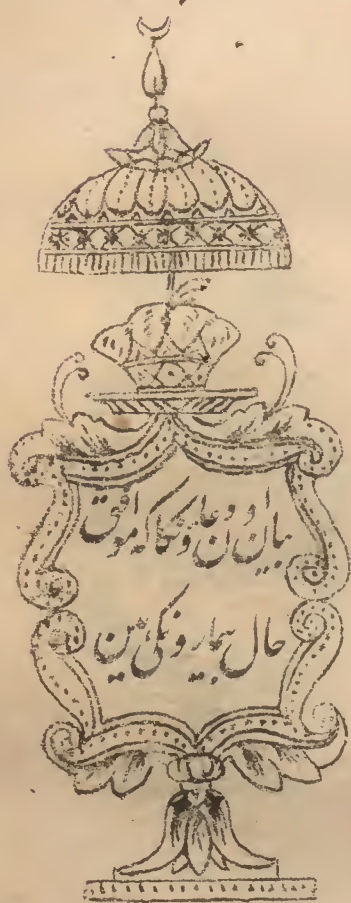 بیان اون دعاونکا که موافق
حال بیمارونکی ہین